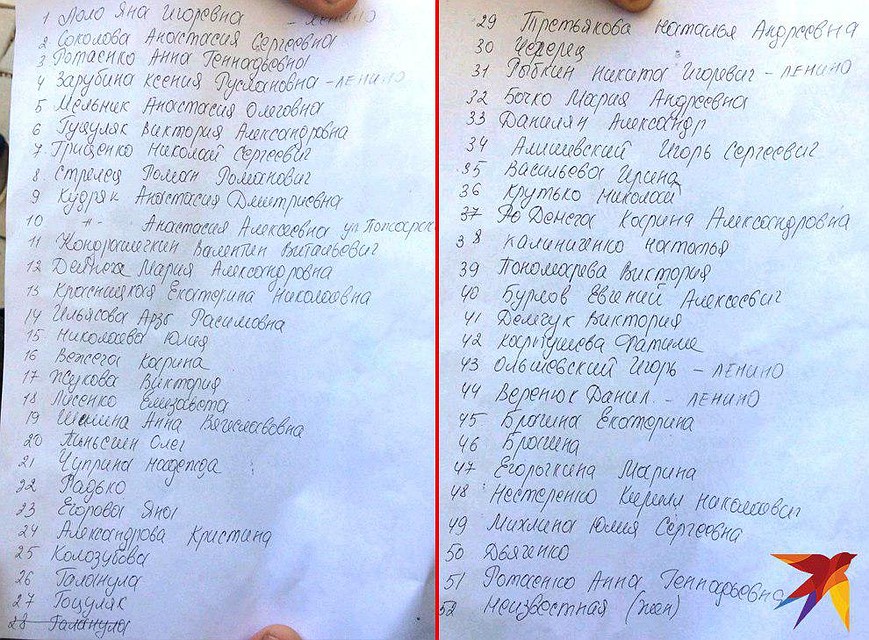 1 Лоло Яна Игоревна - ЛЕНИНО
2 Соколова Анастасия Сергеевна
3 Ротаенко Анна Геннадьевна
4 Зарубина Ксения Руслановна - ЛЕНИНО
5 Мельник Анастасия Олеговна
6 Гуцуляк Виктория Александровна
7 Гриценко Николай Сергеевич
8 Стрелец Роман Романович
9 Кудряк Анастасия Дмитриевна
10 -"- Анастасия Алексеевна
11 Кондрашечкин Валентин Витальевич
12 Мария Александровна
13 Красницкая Екатерина Николаевна
14 Ильясова Арзы Расимовна
15 Николаева Юлия
16 Карина
17 Жукова Виктория
18 Лисенко Елизавета
19 Шилина Анна Вячеславовна
20 Олег
21 Чуприна надежда
22 Радько
23 Егорова Яна
24 Александрова Кристина
25 Колозубова
26 Галанула
27 Гоцуляк
28 Галанула
29 Третьякова Наталья Андреевна
30
31 Рыбкин Никита Игоревич - ЛЕНИНО
32 Бочко Мария Андреевна
33 Данилян Александр
34 Алишевский Игорь Сергеевич
35 Васильева Ирина
36 Крутько Николай
37 Денега Карина Александровна
38 Калиниченко Наталья
39 Пономарева Виктория
40 Бурлов Евгений Алексеевич
41 Демчук Виктория
42 Фатиме
43 Ольшевский Игорь - ЛЕНИНО
44 Веренюк Данил. - ЛЕНИНО
45 Брагина Екатерина
46 Брагина
47 Егорочкина Марина
48 Нестеренко Кирилл Николаевич
49 Михлина Юлия Сергеевна
50 Дьяченко
51 Ротаенко Анна Геннадьевна
52 Неизвестная (жен)